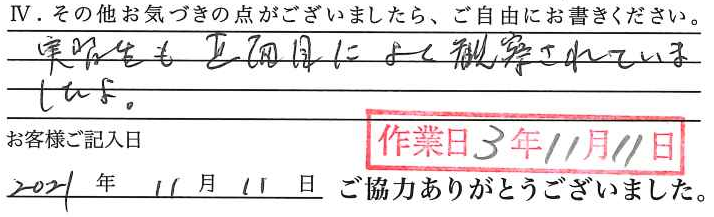 Ⅳ．その他お気づきの点がございましたら、ご自由にお書きください。
実習生も真面目によく観察されていま
したよ。
お客様ご記入日
作業日3年11月11日
2021年11月11日 ご協力ありがとうございました。